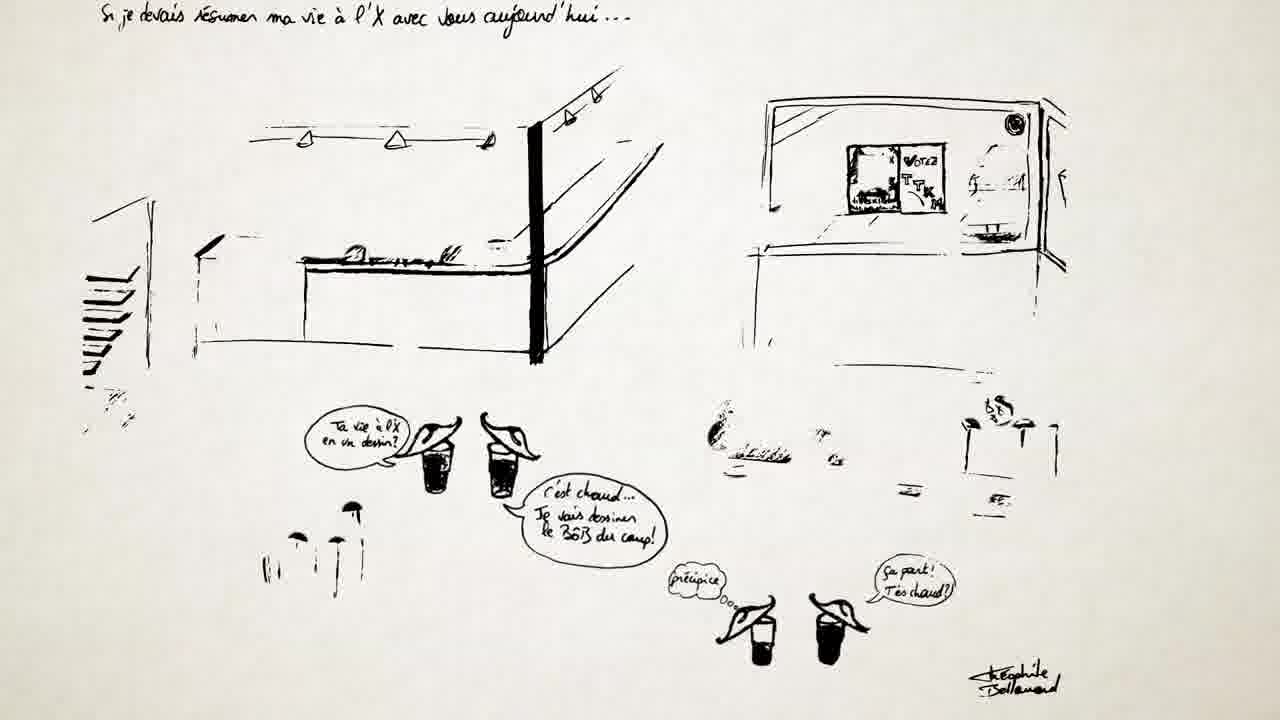 Si je devais résumer ma vie à l'X avec vous aujourd'hui...
VOTEZ
TTK
Ta vie à l'X
en un dessin?
C'est chaud...
Je vais dessiner
le BôB du coup!
précipice
ça part!
T'es chaud?
Théophile